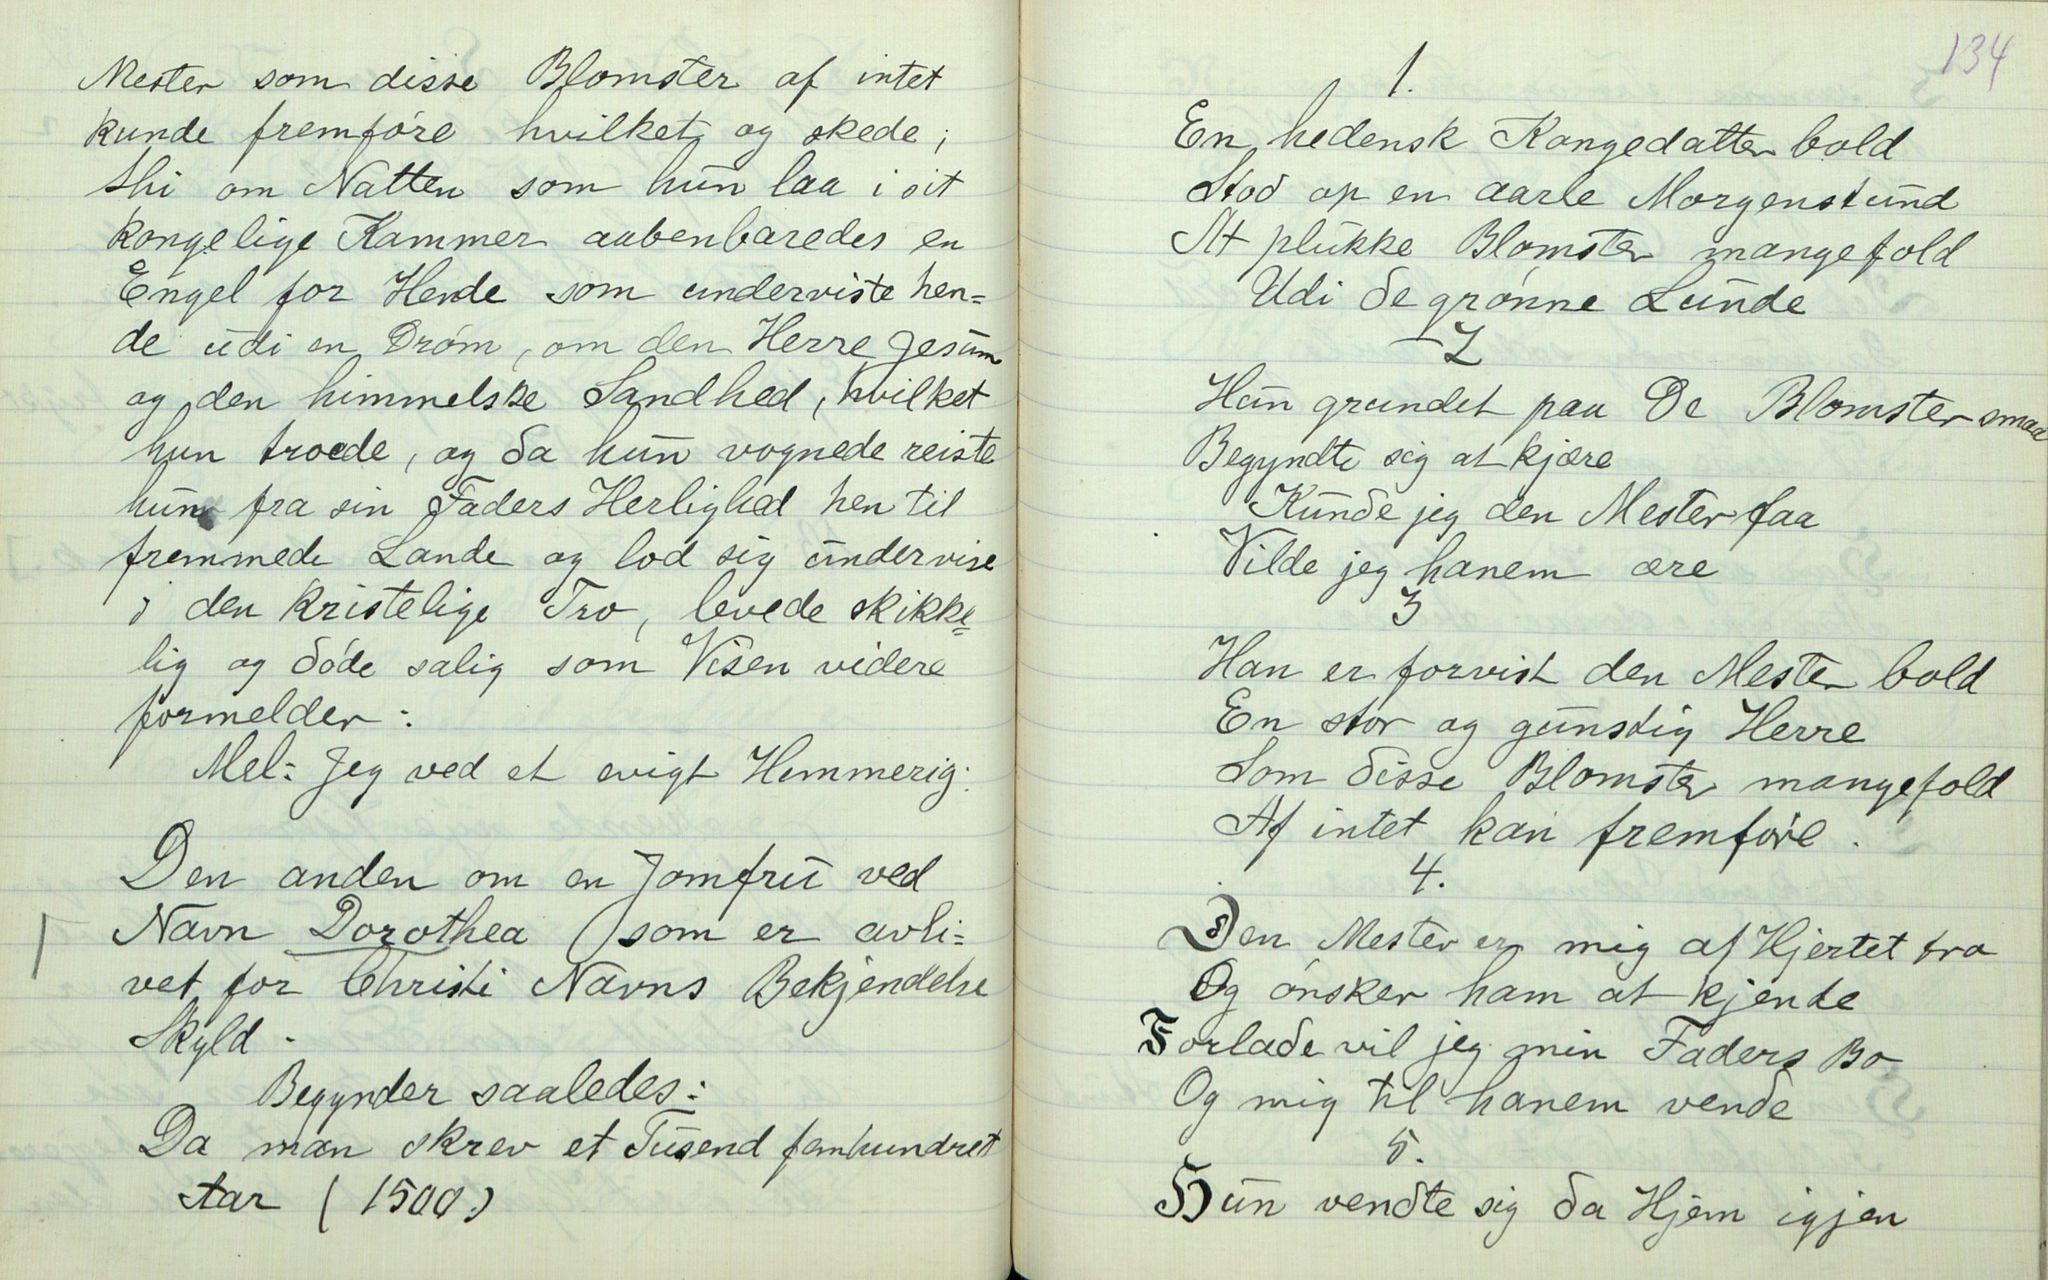 Mester som disse Blomster af intet
kunde fremføre hvilket og skede;
thi om Natten som hun laa i sit
kongelige Kammer aabenbaredes en
Engel for Hende som underviste hen=
de udi en Drøm, om den Herre Jesum
og den himmelske Sandhed, hvilket
hun troede, og da hun vognede reiste
hun fra sin Faders Herlighed hen til
fremmede Lande og lod sig undervise
i den kristelige Tro, levede skikke=
lig og døde salig som Visen videre
formelder:
Mel: Jeg ved et evigt Hemmerig:
Den anden om en Jomfru ved
Navn Dorothea (som er avli=
vet for Christi Navns Bekjendelse
Skyld.
Begynder saaledes:
Da man skrev et Tusend femhundret
Aar (1500)
134
1.
En hedensk Kongedatter bold
Stod op en aarle Morgenstund
At plukke Blomster mangefold
Udi de grønne Lunde
2
Hun grundet paa De Blomster smaa
Begyndte sig at kjære
Kunde jeg den Mester faa
Vilde jeg hanem ære
3
Han er forvist den Mester bold
En stor og gunstig Herre
Som disse Blomster mangefold
Af intet kan fremføre.
4.
Den Mester er mig af Hjertet tro
Og ønsker ham at kjende
Forlade vil jeg min Faders Bo
Og mig til hanem vende
5.
Hun vendte sig da Hjem igjen